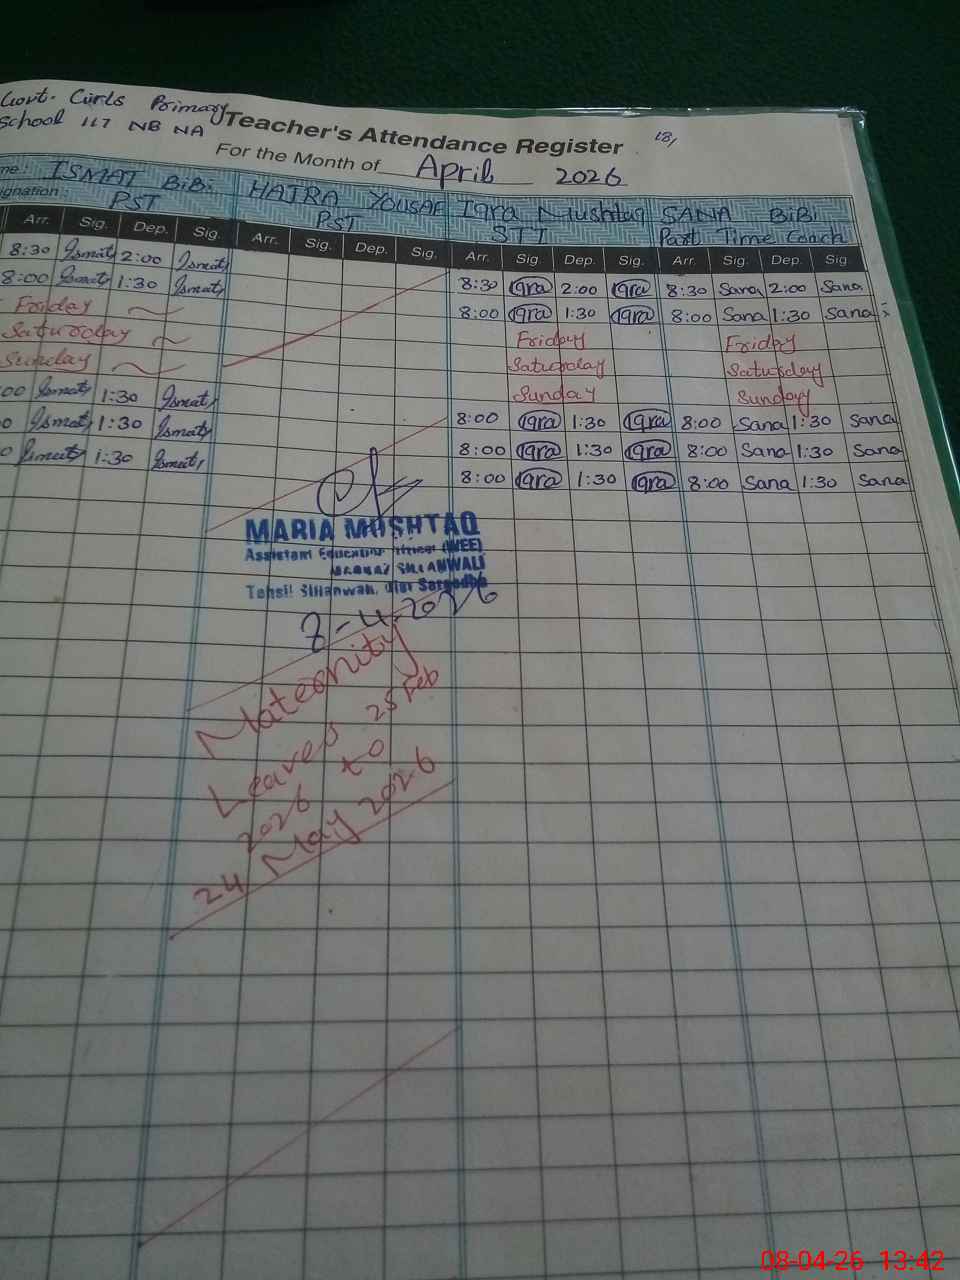 Govt. Girls Primary
School 117 NB NA
Teacher's Attendance Register
For the Month of April 2026
ISMAT BiBi HAJRA YOUSAF Iqra Mushtaq SANA BiBi
PST PST STI Part Time Coach
Arr. Sig. Dep. Sig. Arr. Sig. Dep. Sig. Arr. Sig. Dep. Sig. Arr. Sig. Dep. Sig.
8:30 Ismat 2:00 Ismat 8:30 Iqra 2:00 Iqra 8:30 Sana 2:00 Sana
8:00 Ismat 1:30 Ismat 8:00 Iqra 1:30 Iqra 8:00 Sana 1:30 Sana
Friday Friday Friday
Saturday Saturday Saturday
Sunday Sunday Sunday
00 Ismat 1:30 Ismat 8:00 Iqra 1:30 Iqra 8:00 Sana 1:30 Sana
0 Ismat 1:30 Ismat 8:00 Iqra 1:30 Iqra 8:00 Sana 1:30 Sana
0 Ismat 1:30 Ismat 8:00 Iqra 1:30 Iqra 8:00 Sana 1:30 Sana
MARIA MUSHTAQ
Assistant Education Officer (WEE)
MARKAZ SILLANWALI
Tehsil Sillanwali, Distt Sargodha
8-4-2026
Maternity
Leaves 25 Feb
2026 to
24 May 2026
08-04-26 13:42